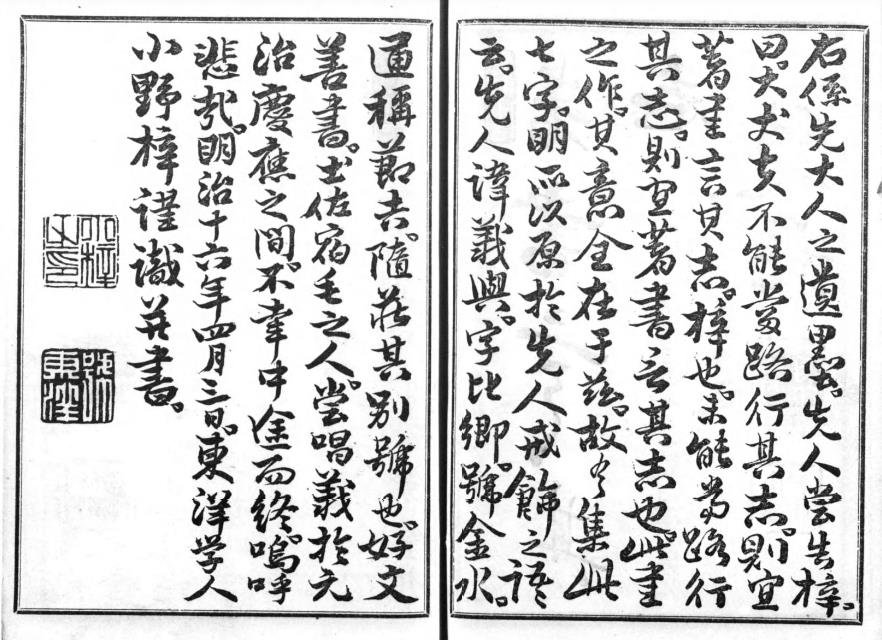 右係先大人之遺墨。先人嘗告梓。
曰。大丈夫不能當路行其志。則宜
著書言其志。梓也。未能當路行
其志。則宜著書言其志也。此書
之作。其意全在于茲。故今集此
七字。明所以原於先人戒飭之語
云。先人諱義與。字比卿。號金水。
通稱節吉。隨莊其別號也。好文
善書。土佐宿毛之人。嘗唱義於元
治慶應之間。不幸中途而終。嗚呼
悲哉。明治十六年四月三日。東洋学人
小野梓謹識并書。
小野梓
東洋